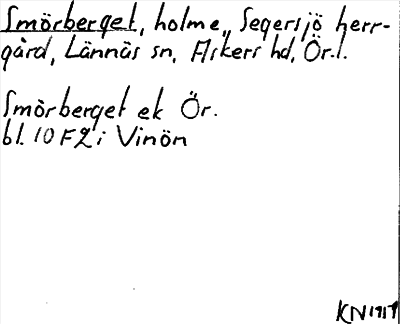 Smörberget, holme, Segersjö herr-
gård, Lännäs sn, Askers hd, Ör.l.
Smörberget ek Ör.
bl. 10 F 2 i Vinön
KN 1917